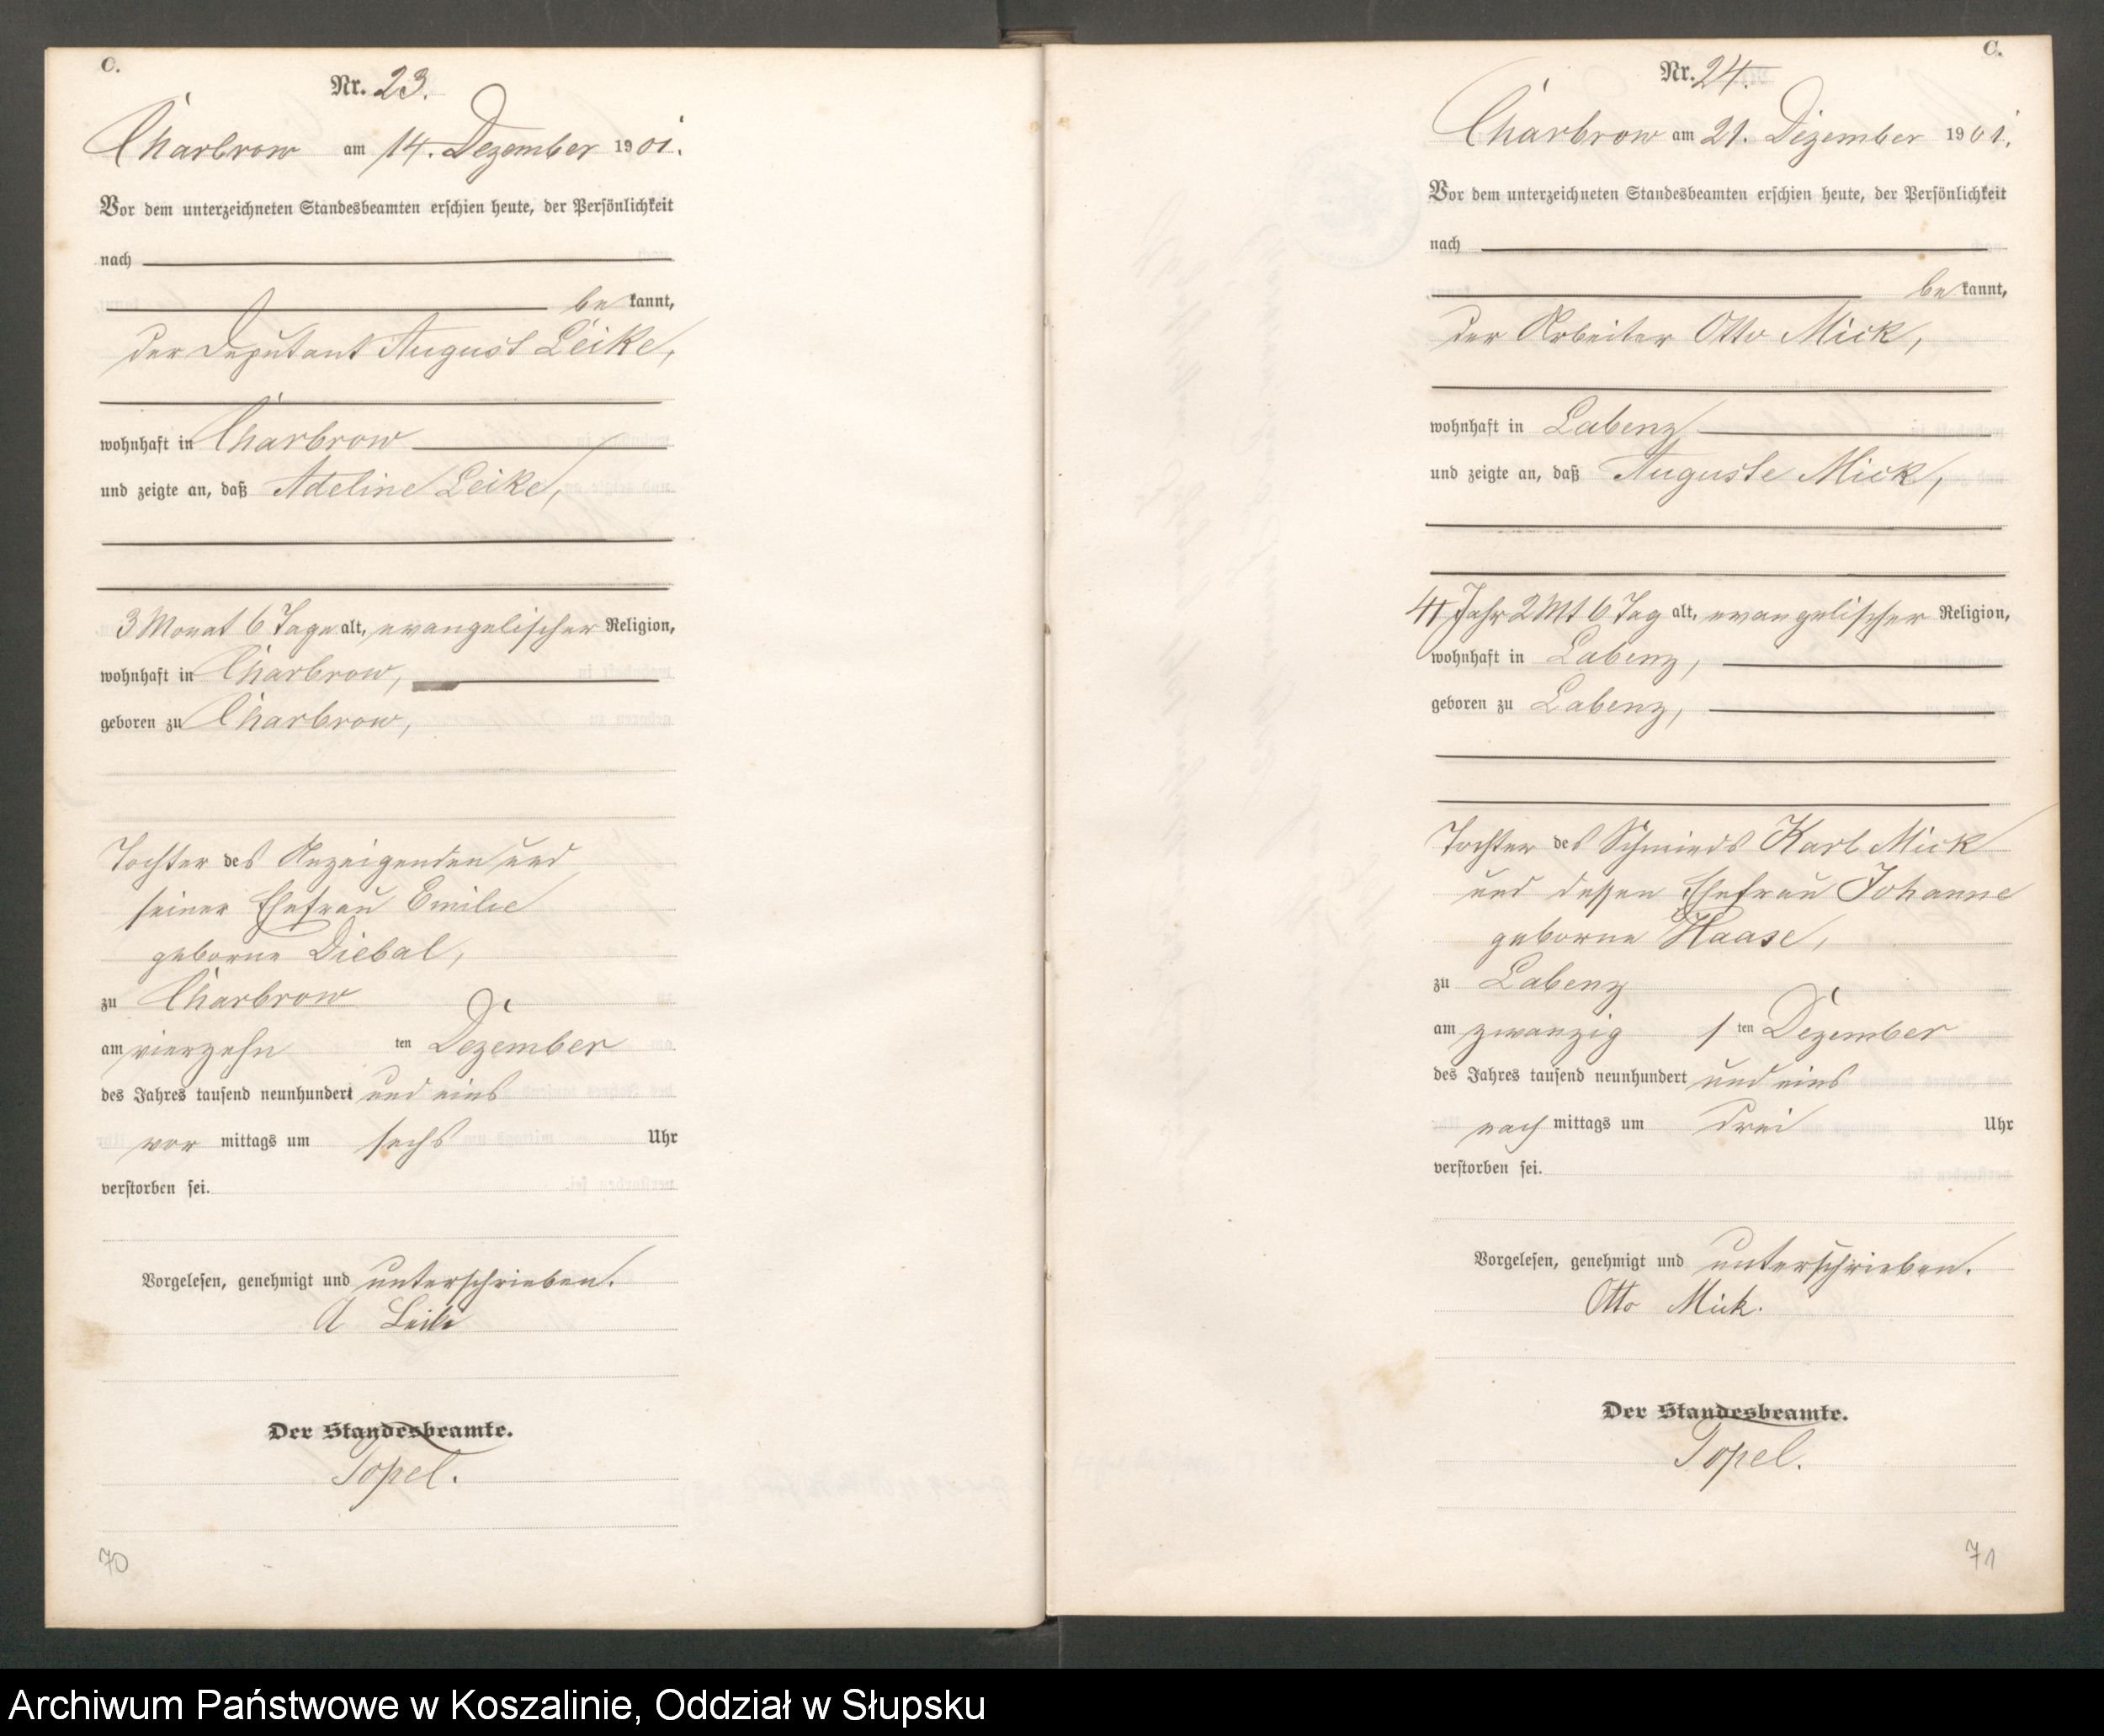 C.
Nr. 23.
Charbrow am 14. Dezember 1901.
Vor dem unterzeichneten Standesbeamten erschien heute, der Persönlichkeit
nach
be kannt,
der Deputant August Leike,
wohnhaft in Charbrow
und zeigte an, daß Adeline Leike,
3 Monat 6 Tage alt, evangelischer Religion,
wohnhaft in Charbrow,
geboren zu Charbrow,
Tochter des Anzeigenden und
seiner Ehefrau Emilie
geborne Diebal,
zu Charbrow
am vierzehn ten Dezember
des Jahres tausend neunhundert und eins
vor mittags um sechs Uhr
verstorben sei.
Vorgelesen, genehmigt und unterschrieben.
A Leike
Der Standesbeamte.
Topel.
70
C.
Nr. 24.
Charbrow am 21. Dezember 1901.
Vor dem unterzeichneten Standesbeamten erschien heute, der Persönlichkeit
nach
be kannt,
der Arbeiter Otto Mick,
wohnhaft in Labenz
und zeigte an, daß Auguste Mick,
Jahr 2 Mt 6 Tag alt, evangelischer Religion,
wohnhaft in Labenz,
geboren zu Labenz,
Tochter des Schmieds Karl Mick
und dessen Ehefrau Johanne
geborne Haase,
zu Labenz
am zwanzig ten Dezember
des Jahres tausend neunhundert und eins
nach mittags um drei Uhr
verstorben sei.
Vorgelesen, genehmigt und unterschrieben.
Otto Mick.
Der Standesbeamte.
Topel.
71
Archiwum Państwowe w Koszalinie, Oddział w Słupsku